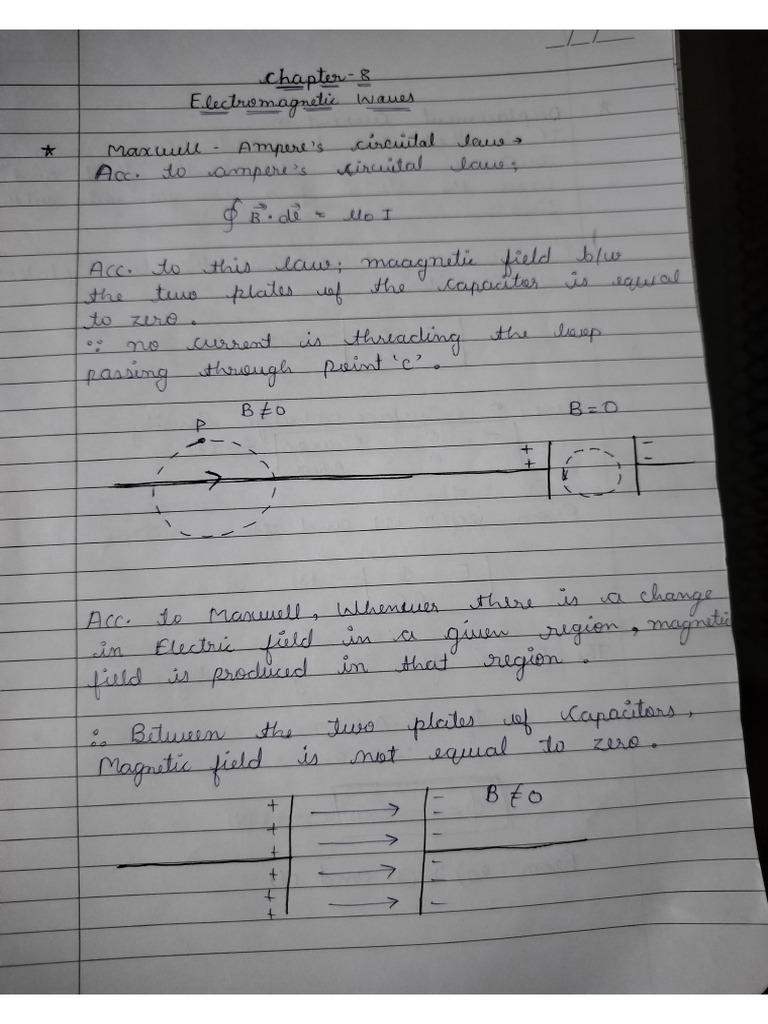 Chapter-8
Electromagnetic Waves
* Maxwell - Ampere's circuital law →
Acc. to ampere's circuital law;
∮ B⃗. dl⃗ = μ0 I
Acc. to this law; maagnetic field b/w
the two plates of the capacitor is equal
to zero.
∵ no current is threading the loop
passing through point 'c'.
B ≠ 0 B = 0
P
+ −
+ −
Acc. to Maxwell, Whenever there is a change
in Electric field in a given region, magnetic
field is produced in that region.
∴ Between the two plates of Capacitors,
Magnetic field is not equal to zero.
+ − B ≠ 0
+ −
+ −
+ −
+ −
+